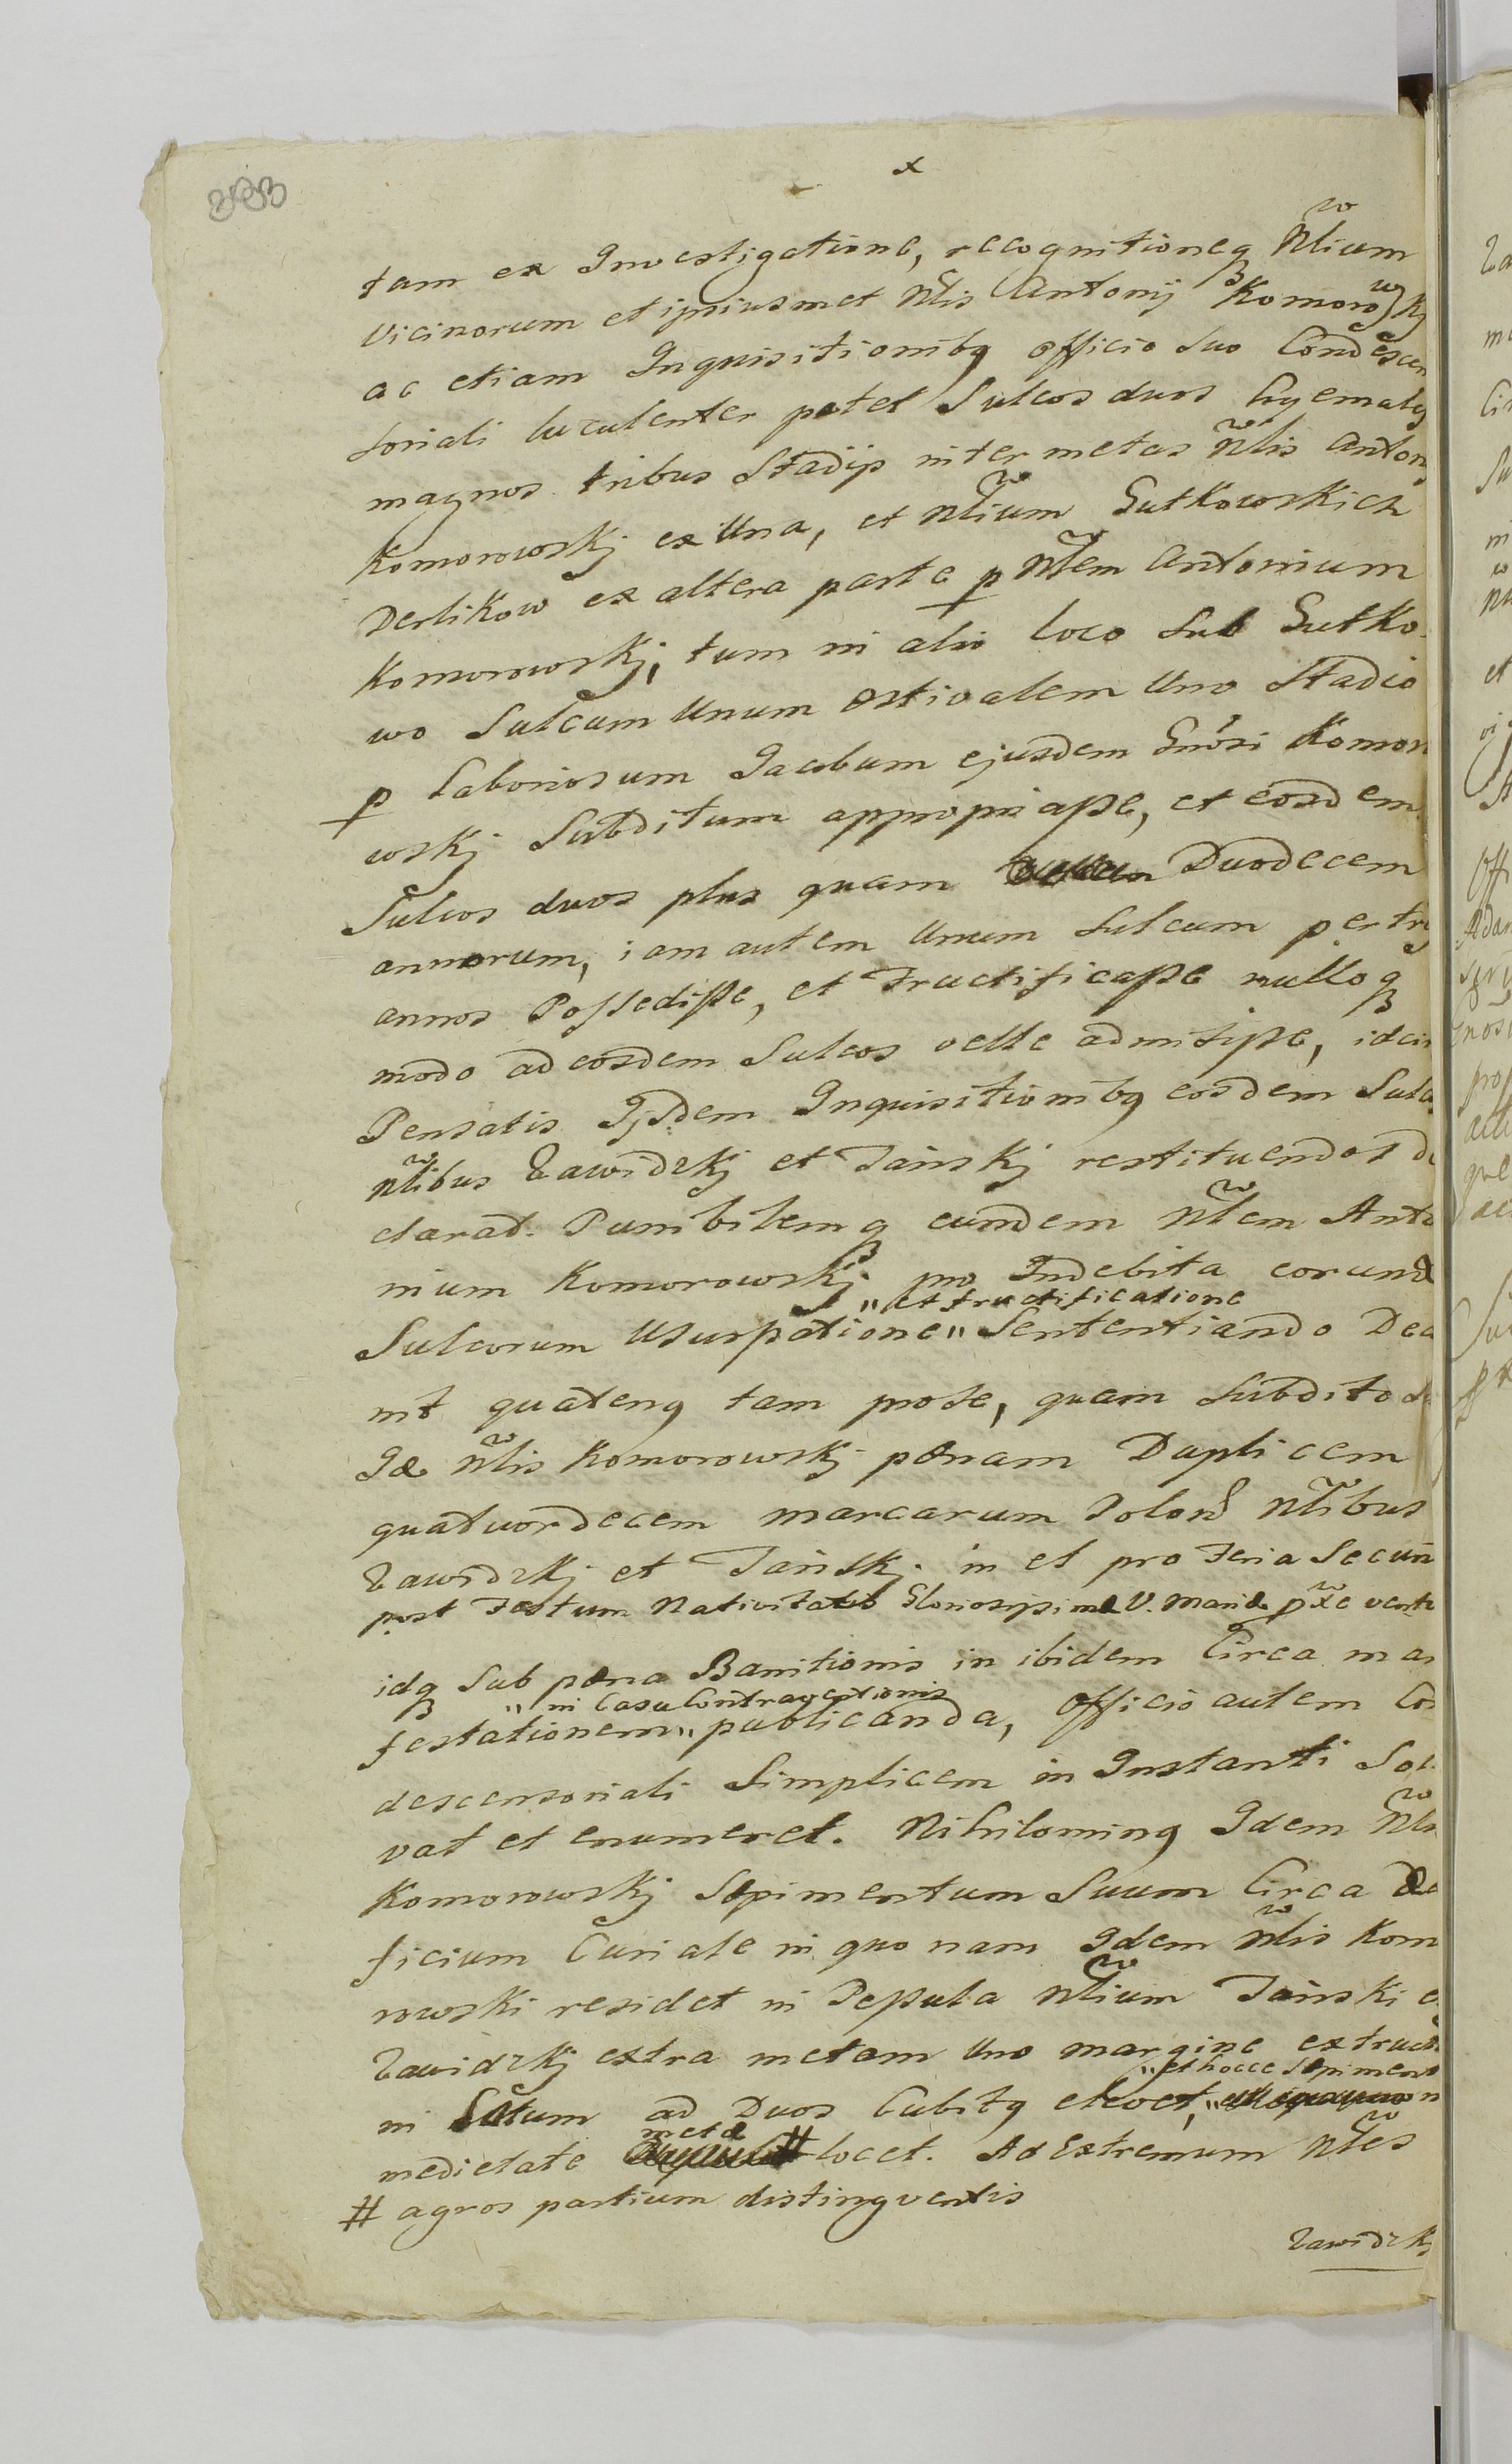 x
tam ex Investigatione, recognitioneq Nlium
Vicinorum et ipsiusmet Nlis Antonij Komorowskj
ac etiam Inquisitionibq officio suo Condescen
soriali luculenter patet Sulcos duos hyemales
magnos tribus Stadijs inter metas Nlis Antonj
Komorowskj ex Una, et Nlium Gutkowskich
Derlikow ex altera parte p Nlem Antonium
Komorowskj, tum in alio loco sub Gutko
wo Sulcum Unum æstivalem Uno Stadio
p Laboriosum Jacobum ejusdem Gnosi Komoro
wskj Subditum appropriasse, et eosdem
Sulcos duos plus quam Duodecem
annorum, iam autem Unum sulcum per tres
annos Possedisse, et Fructificasse nulloq
modo ad eosdem Sulcos velle admisisse, idcir
Pensatis Ijsdem Inquisitionibq eosdem Sulcos
Nlibus Zawidzkj et Jańskj restituendos de
clarat. Punibilemq eundem Nlem Anto
nium Komorowskj pro Indebita eorund
"et fructificatione
Sulcorum Usurpatione" Sententiando Dec
nit quatenq tam pro se, quam Subdito su
Ide Nlis Komorowskj pænam Duplicem
quatuordecem marcarum Polond Nlibus
Zawidzkj et Jańskj in et pro Feria Secun
post Festum Nativitatis Gloriosissimæ V. Mariæ pxe ventu
idq sub pæna Banitionis in ibidem Circa ma
"in Casu Contraventionis
festationem" publicanda, Officio autem Con
descensoriali Simplicem in Instanti Sol
vat et enumeret. Nihilominq Idem Nlis
Komorowskj Sæpimentum Suum Circa Æd
ficium Curiale in quo nam Idem Nlis Kom
rowski residet in Pessula Nlium Jański e
Zawidzkj extra metam Uno margine extruct
"et hocce Sæpiment
in Satum ad Duos Cubitq elevet,"
metæ
medietate # locet. Ad Extremum Nles
# agros partium distingventis
Zawidzkj